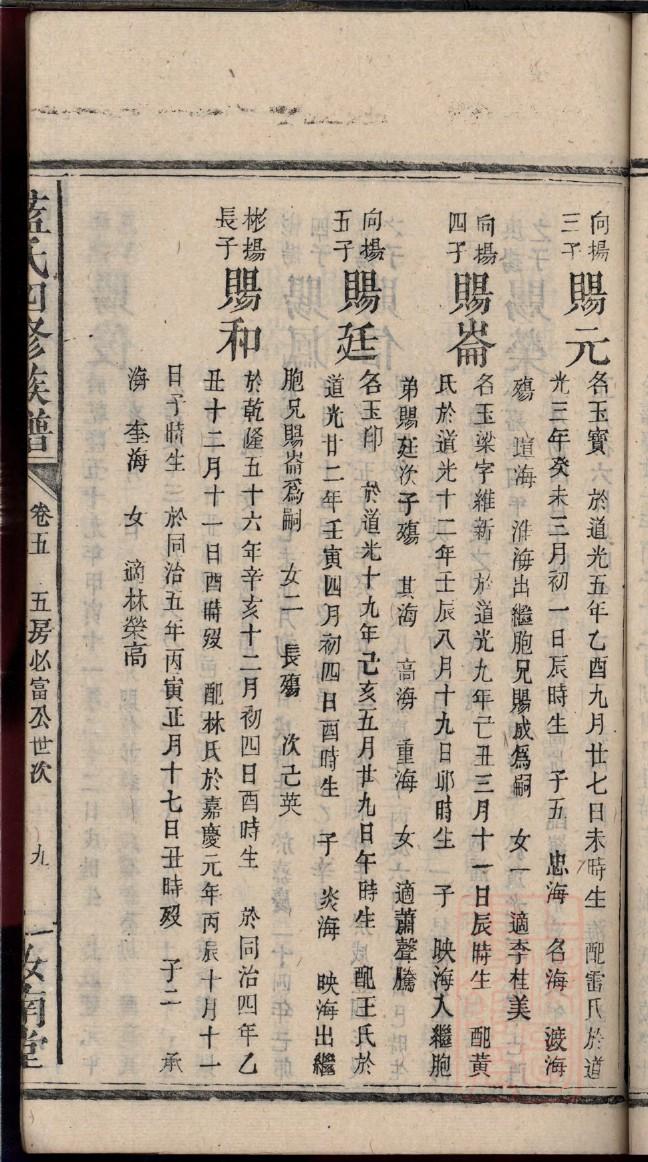 向揚
三子
賜元
名玉寳 於道光五年乙酉九月廿七日未時生 配雷氏於道
光三年癸未三月初一日辰時生 子五 忠海 名海 渡海
殤 道海 淮海出繼胞兄賜成爲嗣 女一適李桂美
向揚
四子
賜崙
名玉梁字維新 於道光九年己丑三月十一日辰時生 配黃
氏於道光十二年壬辰八月十九日卯時生 子 映海入繼胞
弟賜廷次子殤 其海 高海 重海 女 適蕭聲騰
向揚
五子
賜廷
名玉印 於道光十九年己亥五月廿九日午時生 配王氏於
道光廿二年壬寅四月初四日酉時生 子 炎海 映海出繼
胞兄賜崙爲嗣 女二 長殤 次己英
彬揚
長子
賜和
於乾隆五十六年辛亥十二月初四日酉時生 於同治四年乙
丑十二月十一日酉時歿 配林氏於嘉慶元年丙辰十月十一
日子時生 於同治五年丙寅正月十七日丑時歿 子二 承
海 奎海 女 適林榮高
藍氏四修族譜 卷五 五房必富公世次 九 汝南堂